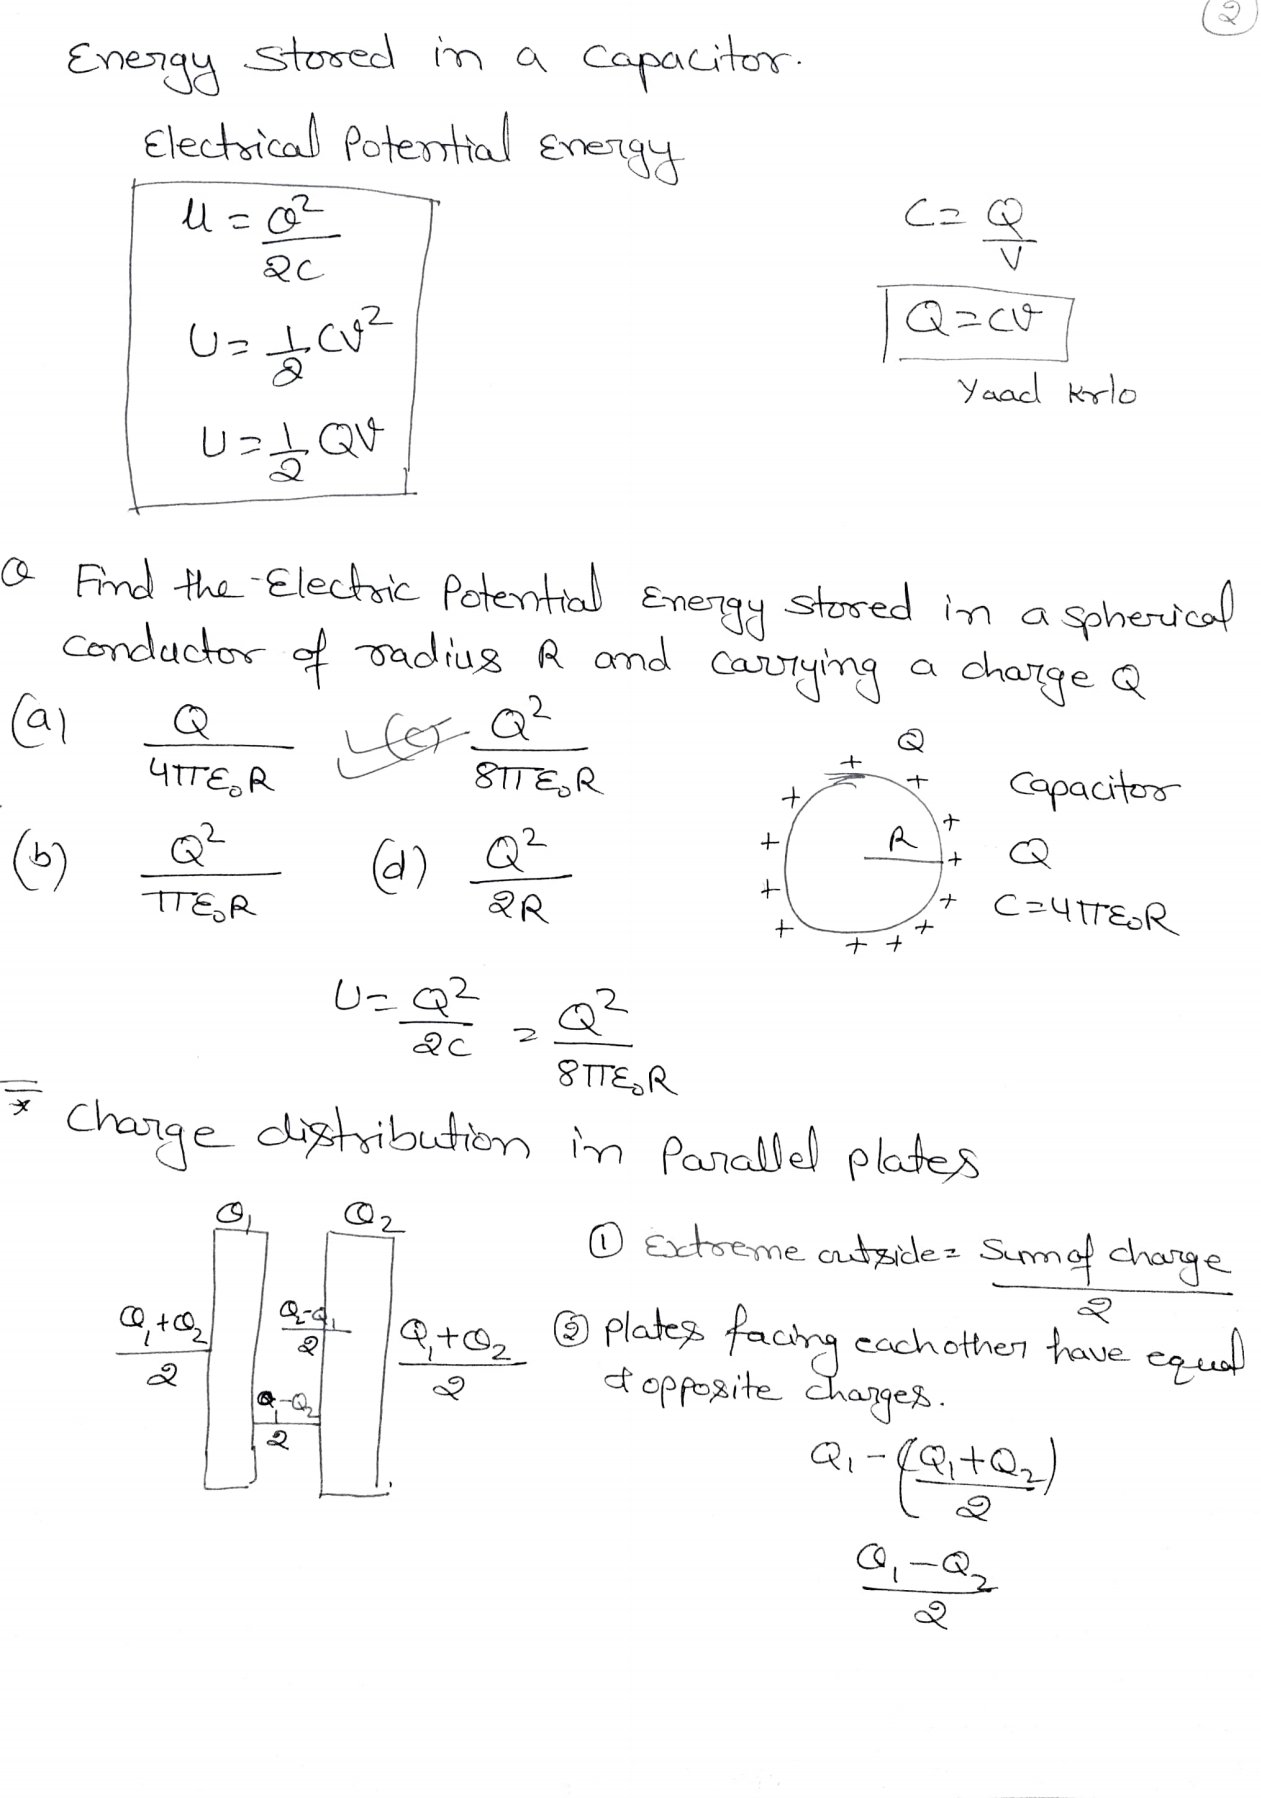 2
Energy stored in a capacitor.
Electrical Potential Energy
U = Q²/2C
U = 1/2 CV²
U = 1/2 QV
C = Q/V
Q = CV
Yaad krlo
Q Find the Electric Potential Energy stored in a spherical
conductor of radius R and carrying a charge Q
(a) Q/4πε₀R (c) Q²/8πε₀R
(b) Q²/πε₀R (d) Q²/2R
Q
+ + + + + + + + + + + + + +
R
Capacitor
Q
C = 4πε₀R
U = Q²/2C = Q²/8πε₀R
* Charge distribution in Parallel plates
Q₁ Q₂
(Q₁+Q₂)/2 (Q₂-Q₁)/2 (Q₁+Q₂)/2
(Q₁-Q₂)/2
① Extreme outside = Sum of charge/2
② Plates facing eachother have equal
& opposite charges.
Q₁ - ((Q₁+Q₂)/2)
(Q₁-Q₂)/2